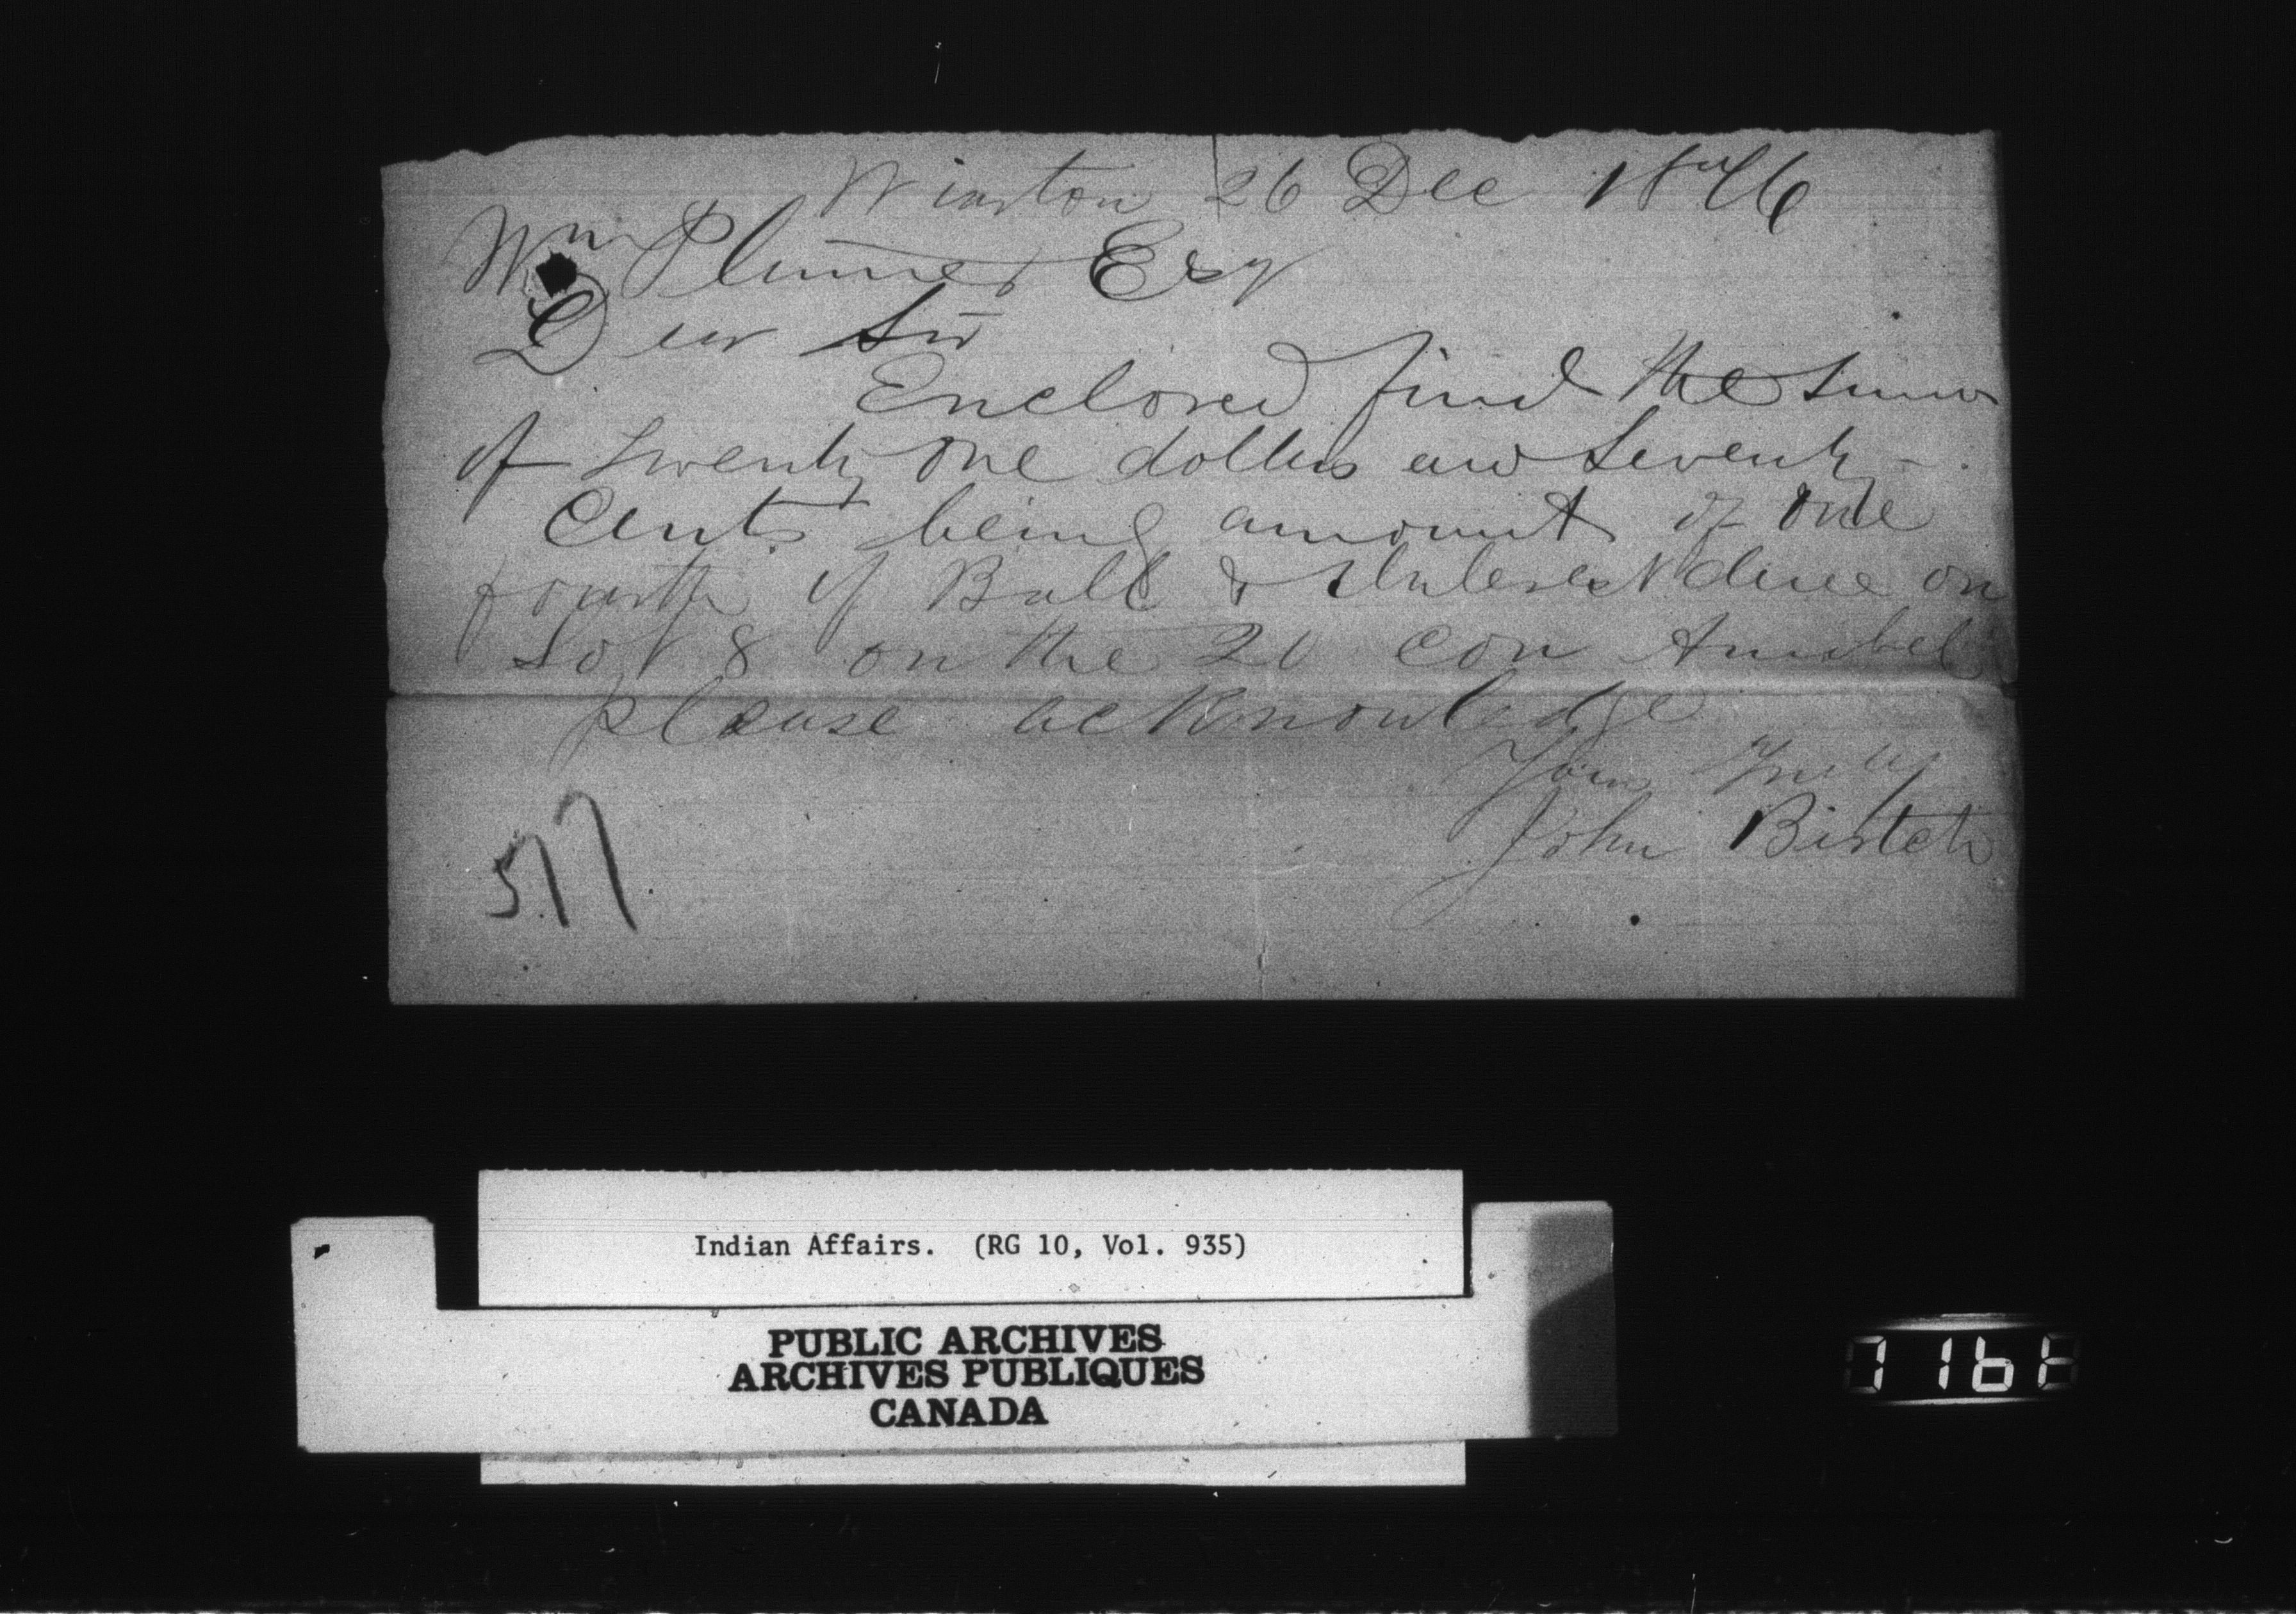 Wiarton 26 Dec 1876
Wm Plumer Esq
Dear Sir
Enclosed find the sum
of twenty one dollars and seventy -
Cents being amount of one
fourth of Ball & Interest due on
Lot 8 on the 20 Con Amabel
please acknowledge
Yours Truly
John
577
Indian Affairs. (RG 10, Vol. 935)
PUBLIC ARCHIVES
ARCHIVES PUBLIQUES
CANADA